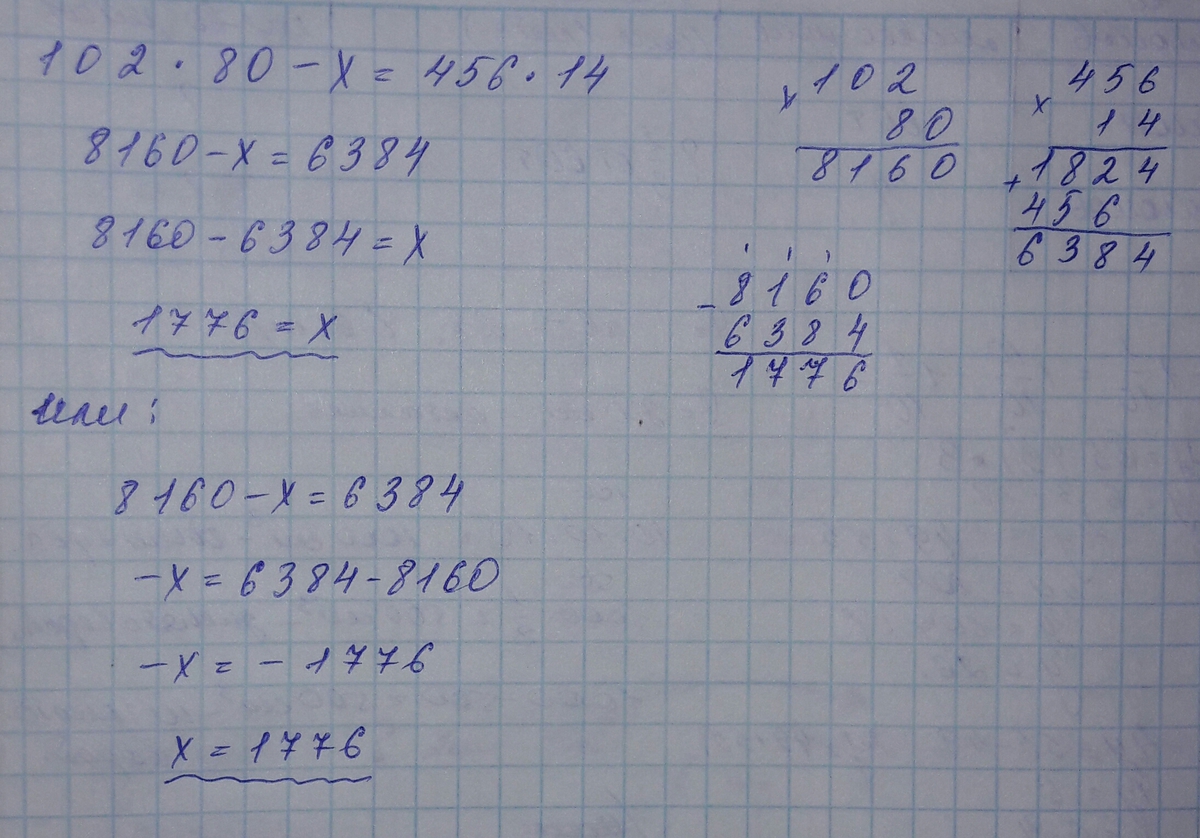 102 · 80 - x = 456 · 14
8160 - x = 6384
8160 - 6384 = x
1776 = x
или:
8160 - x = 6384
-x = 6384 - 8160
-x = - 1776
x = 1776
x 102
80
8160
x 456
14
+ 1824
456
6384
- 8160
6384
1776